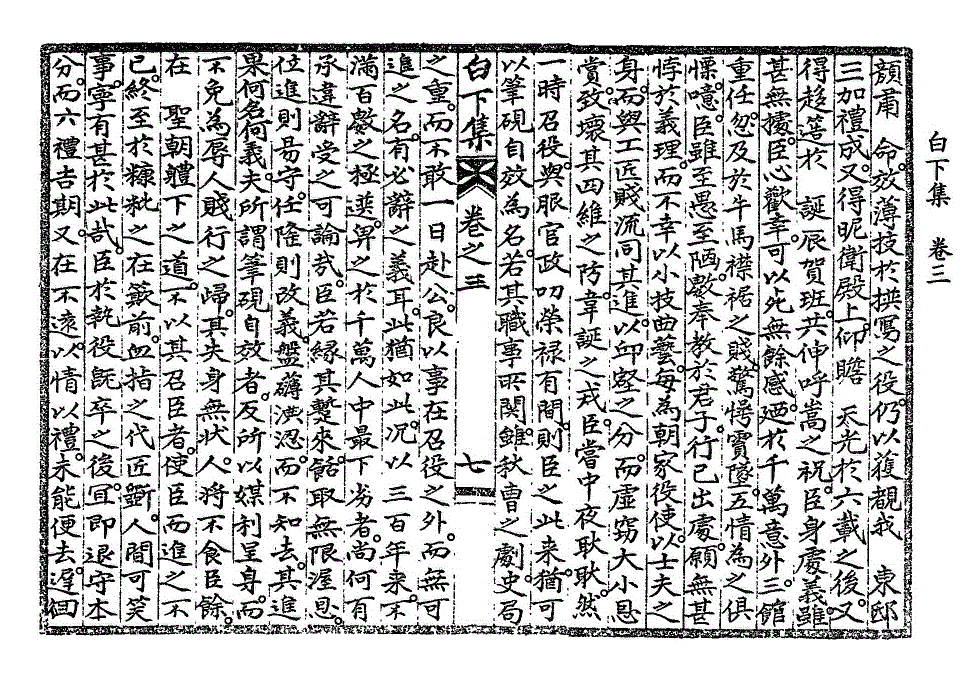 白下集 卷三
顔肅 命。效薄技於撰寫之役。仍以獲覩我 東邸
三加禮成。又得昵衛殿上。仰瞻 天光於六載之後。又
得趍簉於 誕辰賀班。共伸呼嵩之祝。臣身處義。雖
甚無據。臣心歡幸。可以死無餘感。廼於千萬意外。三館
重任。忽及於牛馬襟裾之賤。驚愕霣墜。五情爲之俱
慄。噫。臣雖至愚至陋。數奉教於君子。行己出處。願無甚
悖於義理。而不幸以小技曲藝。每爲朝家役使。以士夫之
身。而與工匠賤流同其進。以卬壑之分。而虛竊大小恩
賞。致壞其四維之防韋誕之戒。臣嘗中夜耿耿。然
一時召役。與服官政叨榮祿有間。則臣之此來。猶可
以筆硯自效爲名。若其職事所關。雖秋曹之劇。史局
白下集 卷之三 七
之重。而不敢一日赴公。良以事在召役之外。而無可
進之名。有必辭之義耳。此猶如此。况以 三百年來。不
滿百數之極選。畀之於千萬人中最下劣者。尚何有
承違辭受之可論哉。臣若緣其蹔來。餂取無限渥恩。
位進則易守。任隆則改義。盤礴淟涊。而不知去。其進
果何名何義。夫所謂筆硯自效者。反所以媒利呈身。而
不免爲辱人賤行之歸。其失身無狀。人將不食臣餘。
在 聖朝軆下之道。不以其召臣者。使臣而進之不
已。終至於糠粃之在簸前。血指之代匠斲。人間可笑
事。寧有甚於此哉。臣於執役旣卒之後。冝卽退守本
分。而六禮吉期。又在不遠。以情以禮。未能便去。遅佪